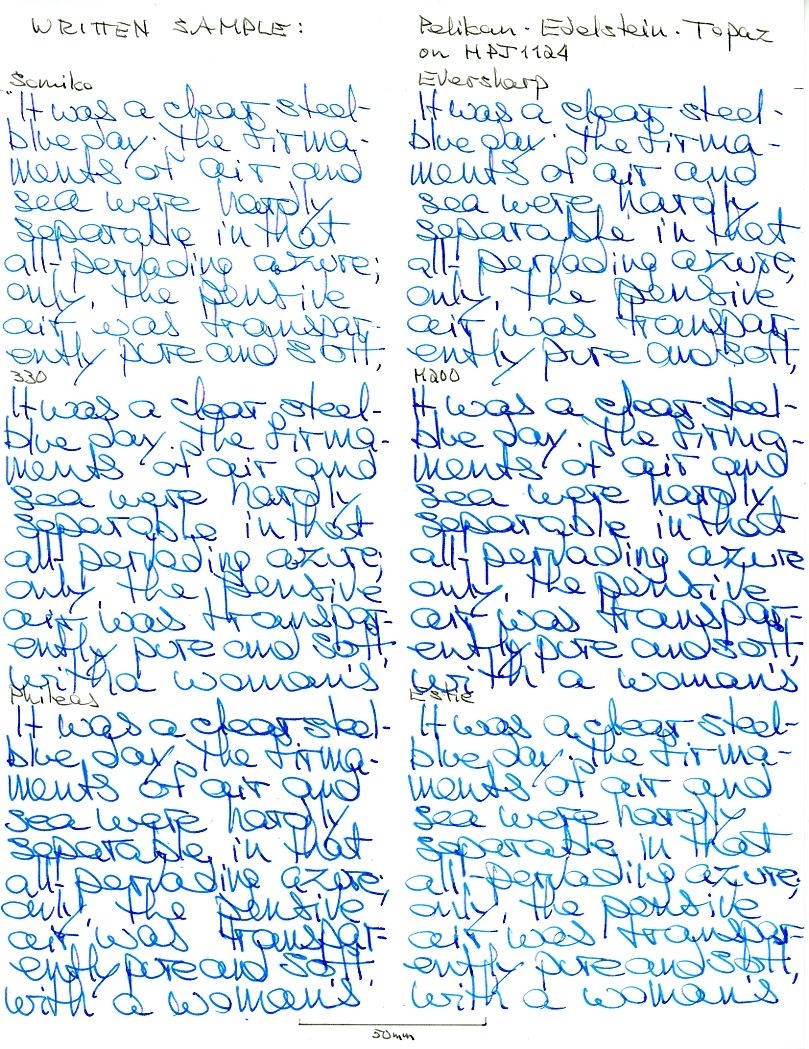 WRITTEN SAMPLE:
Pelikan - Edelstein - Topaz
on HPJ1124
Somiko
"It was a clear steel-
blue day. The firma-
ments of air and
sea were hardly
separable in that
all-pervading azure;
only, the pensive
air was transpar-
ently pure and soft,
330
It was a clear steel-
blue day. The firma-
ments of air and
sea were hardly
separable in that
all-pervading azure;
only, the pensive
air was transpar-
ently pure and soft,
with a woman's
Phileas
It was a clear steel-
blue day. The firma-
ments of air and
sea were hardly
separable in that
all-pervading azure;
only, the pensive
air was transpar-
ently pure and soft,
with a woman's
Eversharp
It was a clear steel-
blue day. The firma-
ments of air and
sea were hardly
separable in that
all-pervading azure;
only, the pensive
air was transpar-
ently pure and soft,
M200
It was a clear steel-
blue day. The firma-
ments of air and
sea were hardly
separable in that
all-pervading azure
only, the pensive
air was transpar-
ently pure and soft,
with a woman's
Estie
It was a clear steel-
blue day. The firma-
ments of air and
sea were hardly
separable in that
all-pervading azure;
only, the pensive
air was transpar-
ently pure and soft,
with a woman's
50mm